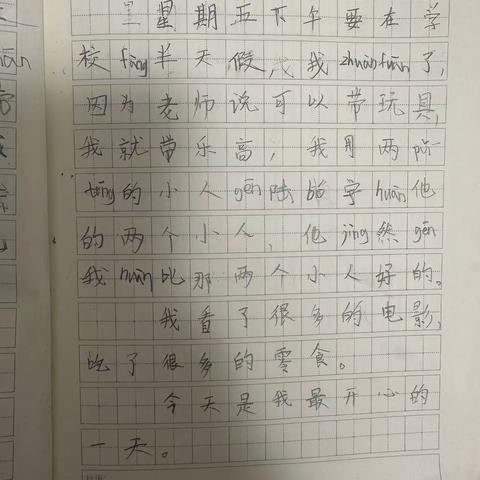 里星期五下午要在学
校fàng半天假,我zhuànfān了,
因为老师说可以带玩具,
我就带乐高,我用两pǔ
tōng的小人gēn陆皓宇huàn他
的两个小人,他jìng然gēn
我huàn比那两个小人好的。
我看了很多的电影,
吃了很多的零食。
今天是我最开心的
一天。